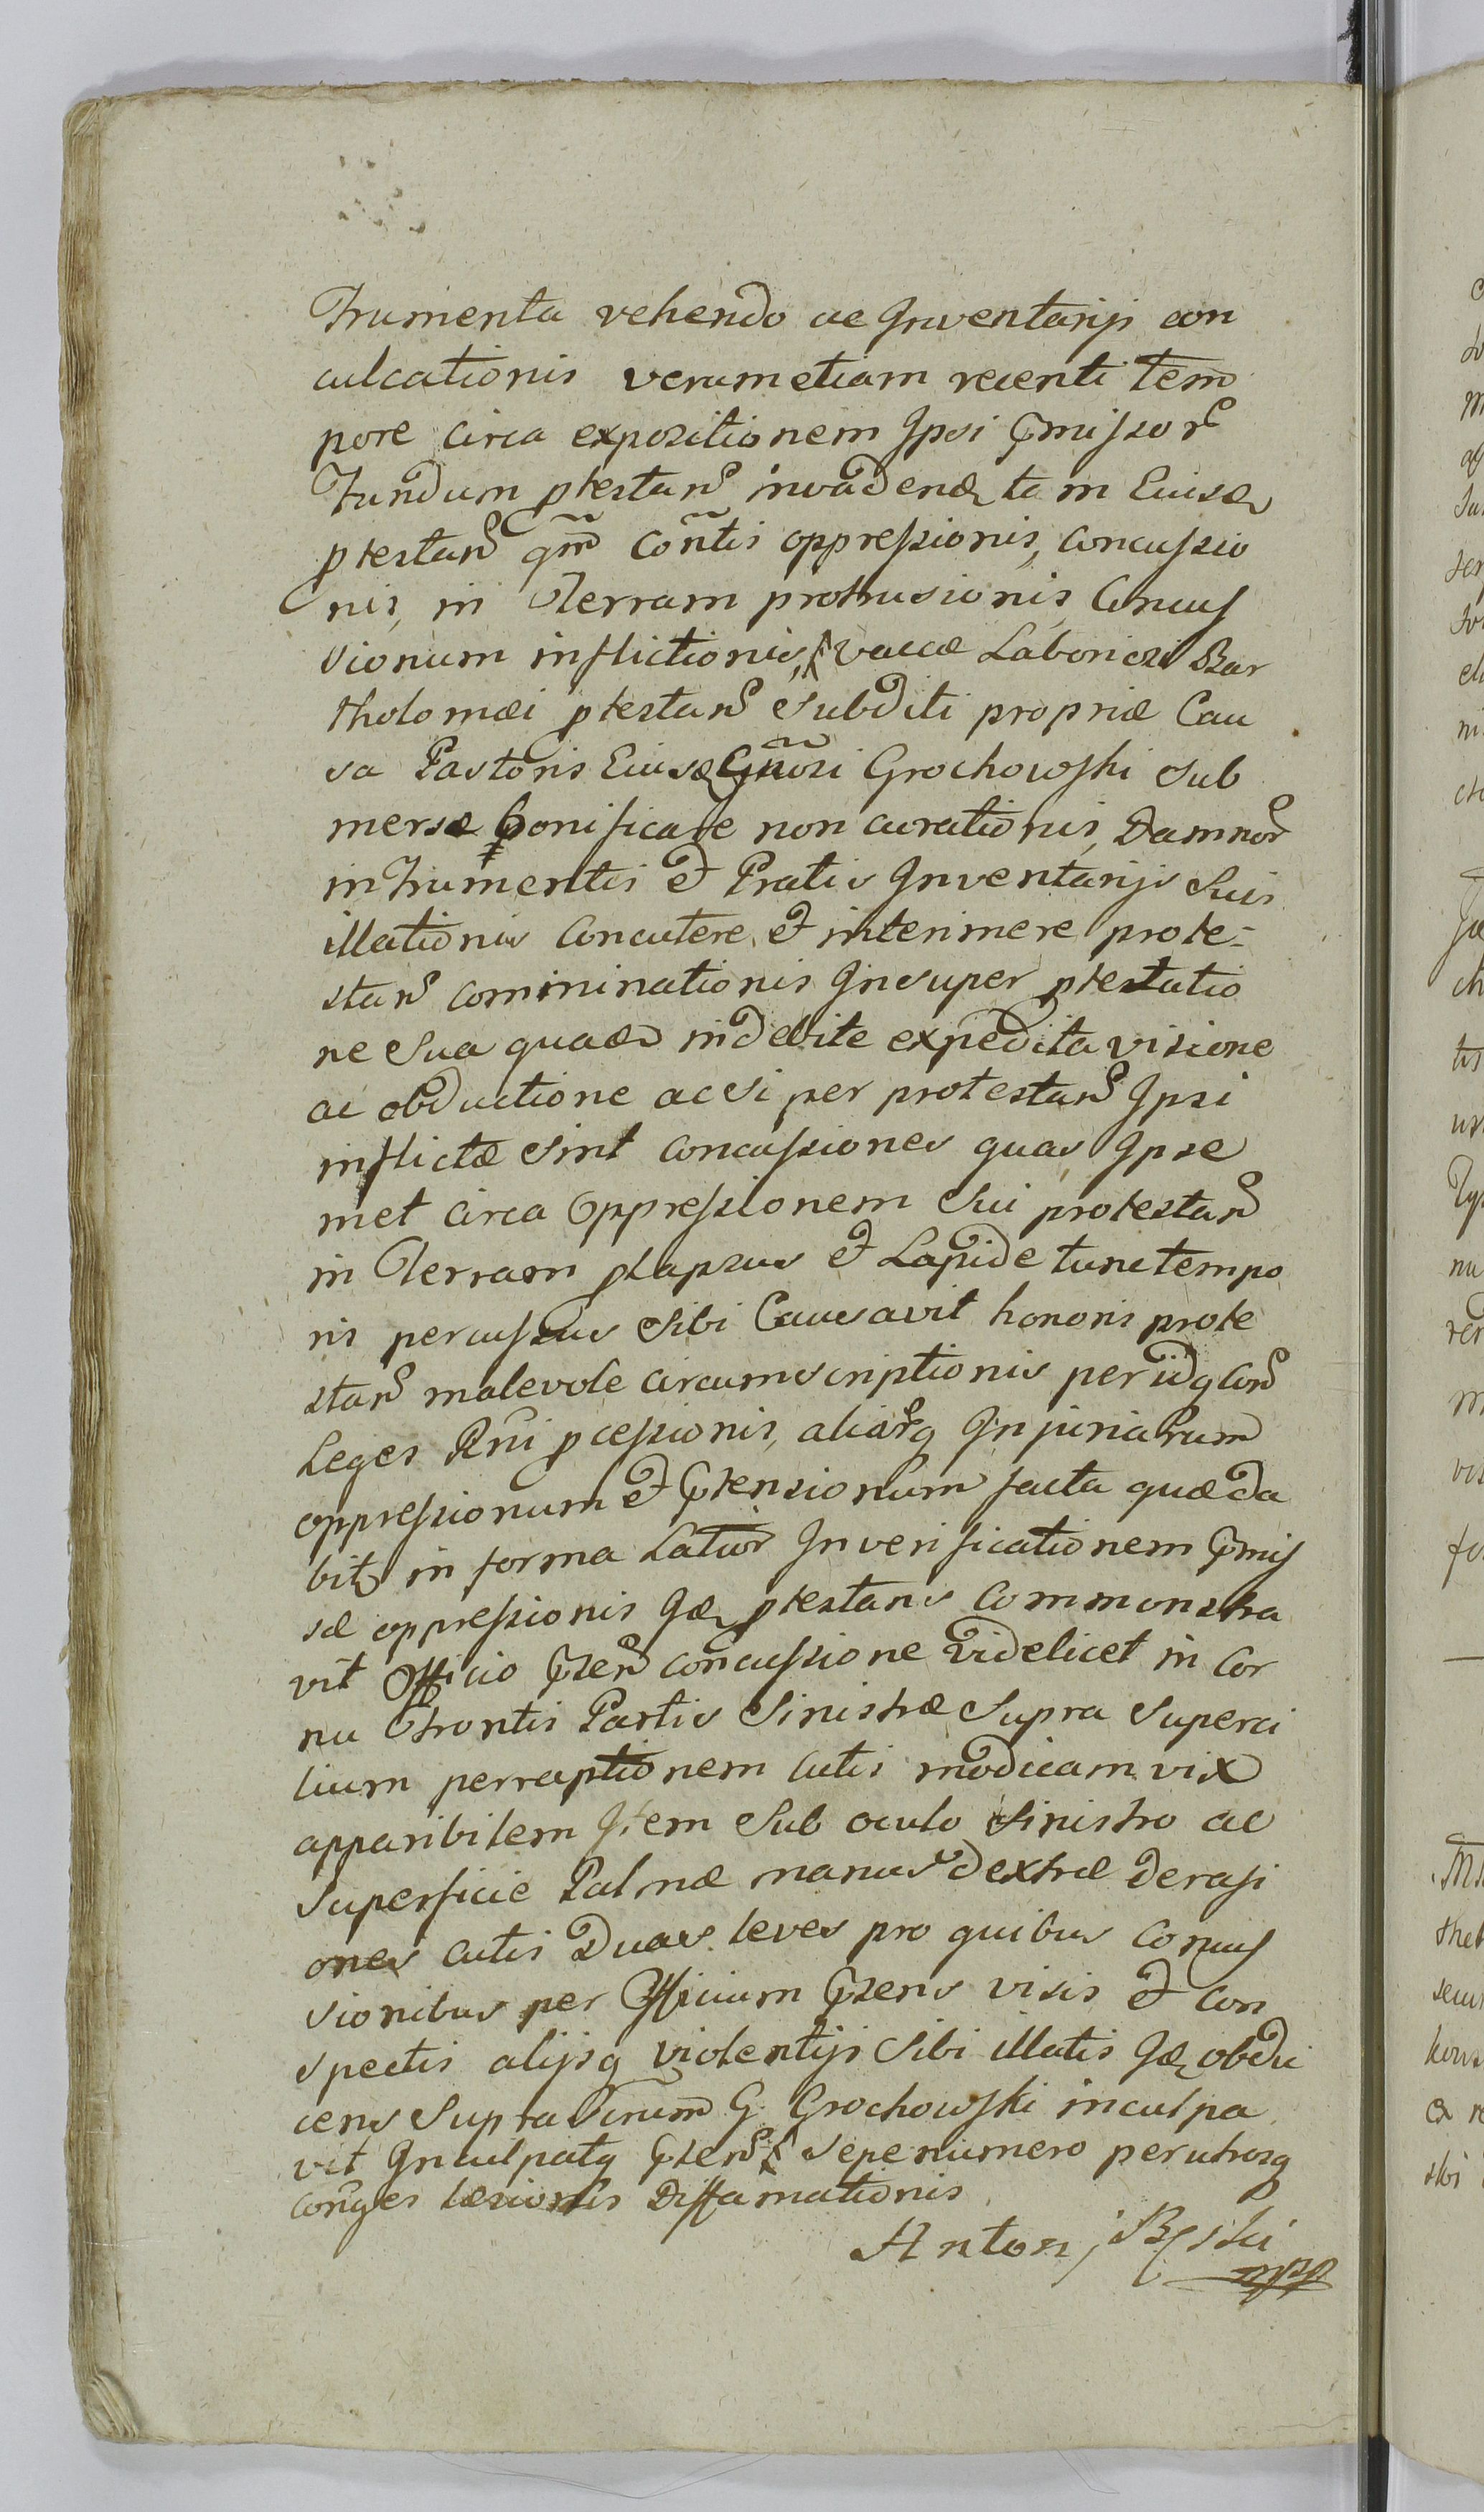 Frumenta vehendo ac Inventarijs con
culcationis verumetiam recenti tem
pore circa expositionem Ipsi Pmissor
Fundum ptestan invadend tam Eiusd
ptestan qm Contis oppressionis, concussio
nis, in Terram protrusionis, Concus
sionum inflictionis, vaccæ Laboriosi Bar
tholomæi ptestan Subditi propriæ Cau
sa Pastoris Eiusd Gnosi Grochowski Sub
mersæ bonificare non curationis, Damnor
in Frumentis et Pratis Inventarijs Suis
illationis Concutere et interimere prote-
stan comminationis Insuper ptestatio
ne Sua quadam indebite expedita visione
ac obductione acsi per protestan Ipsi
inflictæ Sint concussiones quas Ipse
met circa Oppressionem Sui protestan
in Terram plapsus et Lapide tunctempo
ris percussus Sibi Causavit honoris prote
stan malevole circumscriptionis per idq Con
Leges Rni pcessionis, aliarq Injuriarum
oppressionum et Ptensionum facta quæ da
bit in forma Latior In verificationem Pmis
sæ oppressionis Id ptestans Commonstra
vit Officio Psen concussione Videlicet in Cor
nu Frontis Partis Sinistræ Supra Superci
lium perreptionem Cutis modicam vix
apparibilem Item Sub oculo Sinistro ac
Superficie Palmæ manus dextræ Derasi
ones cutis Duas leves pro quibus concus
sionibus per Officium Psens visis et con
spectis alijsq violentijs Sibi illatis Id obdu
cens Supra G. Grochowski inculpa
vit Inculpatq Psen Sepenumero per utrosq
conges læsionis Diffamationis
Antoni
mpp